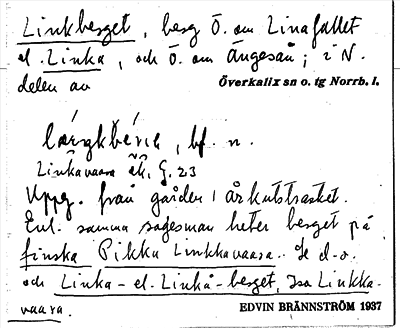 Linkberget, berg Ö. om Linafallet
el. Linka, och Ö. om Ängesån; i N.
delen av
Överkalix sn o. tg Norrb. l.
bf. n.
Linkavaara äk. G. 23
Uppg. från gården i Årkutsträsket.
Enl. samma sagesman heter berget på
finska Pikku Linkkavaara. Se d.o.
och Linka- el. Linkå-berget, Iso Linkka-
vaara.
EDVIN BRÄNNSTRÖM 1937